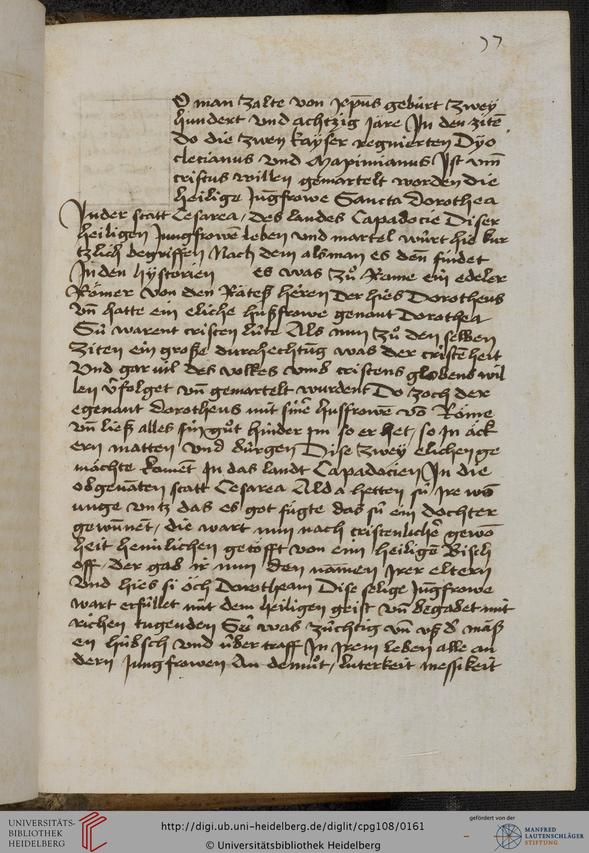 77
O man tzalte von jeps̄us gebúrt tzwey
hundert vnd achtzig jăre Jn den zitē
do die tzwen kaÿser regnierten Dyo
cletianus vnd Maximianus Jst vm̄
cristus willen gemartelt worden die
heilige Jūgfrowe Sancta dorothea
Jn der statt Cesarea / des landes Capadocie Diser
heiligen Jungfrowē leben vnd martel wúrt hie kur
tzlich begriffen Nach dem als man es den̄ findet
Jn den hÿstorien es was zů Rome ein edeler
Römer von den Rätess heren Der hies Dorotheus
vn̄ hatte ein eliche hußfrowe genant Dorothea
Sú warent cristen lúte Als nun zů den selben
ziten ein große durchechtūg was der cristēheit
Vnd gar vil des volkes vmb cristens globens wil
len v̄folget vn̄ gemartelt wurdent Do zoch der
egenant dorotheus mit sinē husfrowe vō Röme
vn̄ ließ alles sin gůt hinder jm so er het / so in äck
ern matten vnd búrgen Dise zwey elichen ge
mächte komēt Jn das landt Capadocien Jn die
obgenāten statt Cesarea Alda hetten sú jre wo
nunge vntz das es got fúgte das sú ein dochter
gewun̄ēt / die wart nun nach cristenlichē gewō
heit heimlichen getöfft von eim heiligē Bisch
off / Der gab ir nun den namen jrer eltern
Vnd hies si öch Dorotheam Dise selige Jūgfrowe
wart erfúllet mit dem heiligen geist vn̄ begabet mit
richen tugenden Sú was zúchtig vn̄ vß d' mäß
en húbsch vnd úbertraff Jn jrem leben alle an
dern jungfrowen An demůt / luterkeit messikeit
UNIVERSITÄTS-
BIBLIOTHEK
HEIDELBERG
http://digi.ub.uni-heidelberg.de/diglit/cpg108/0161
© Universitätsbibliothek Heidelberg
gefördert von der
MANFRED
LAUTENSCHLÄGER
STIFTUNG